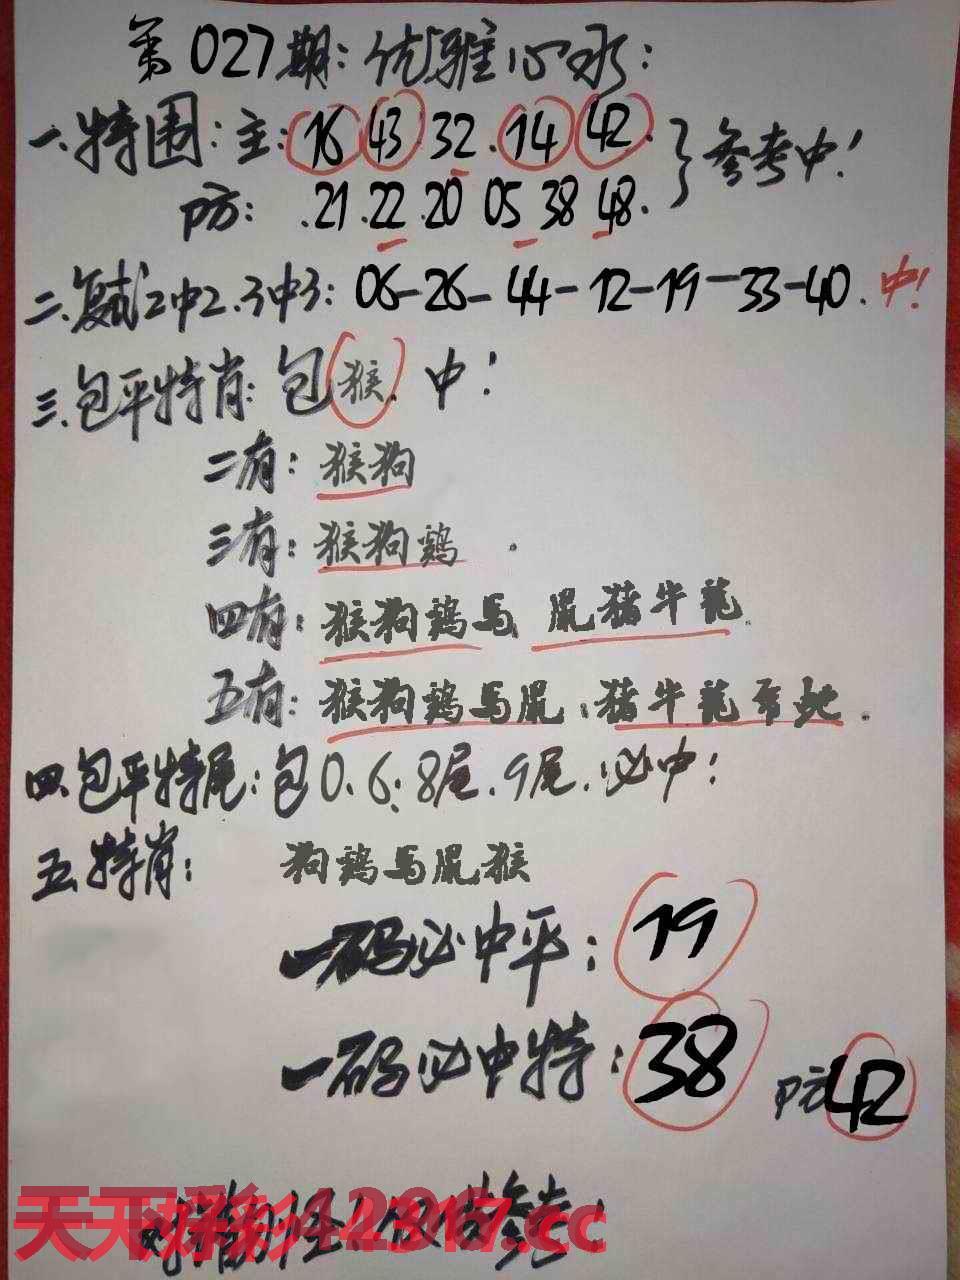 第027期：优雅心水：
一.特围：主：16 43 32.14 42. }参考中！
防：.21.22.20 05 38 48.
二.复式2中2.3中3：06-26-44-12-19-33-40.中！
三.包平特肖：包猴.中！
二有：猴狗
三有：猴狗鸡.
四有：猴狗鸡马、鼠猪牛龙.
五有：猴狗鸡马鼠；猪牛龙 蛇.
四.包平特尾：包0.6.8尾.9尾.必中！
五.特肖： 狗鸡马鼠猴
一码必中平：19
一码必中特：38 防42
天下彩 cc